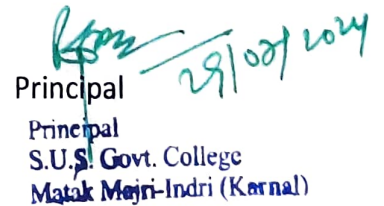 29/02/2024
Principal
Principal
S.U.S. Govt. College
Matak Majri-Indri (Karnal)